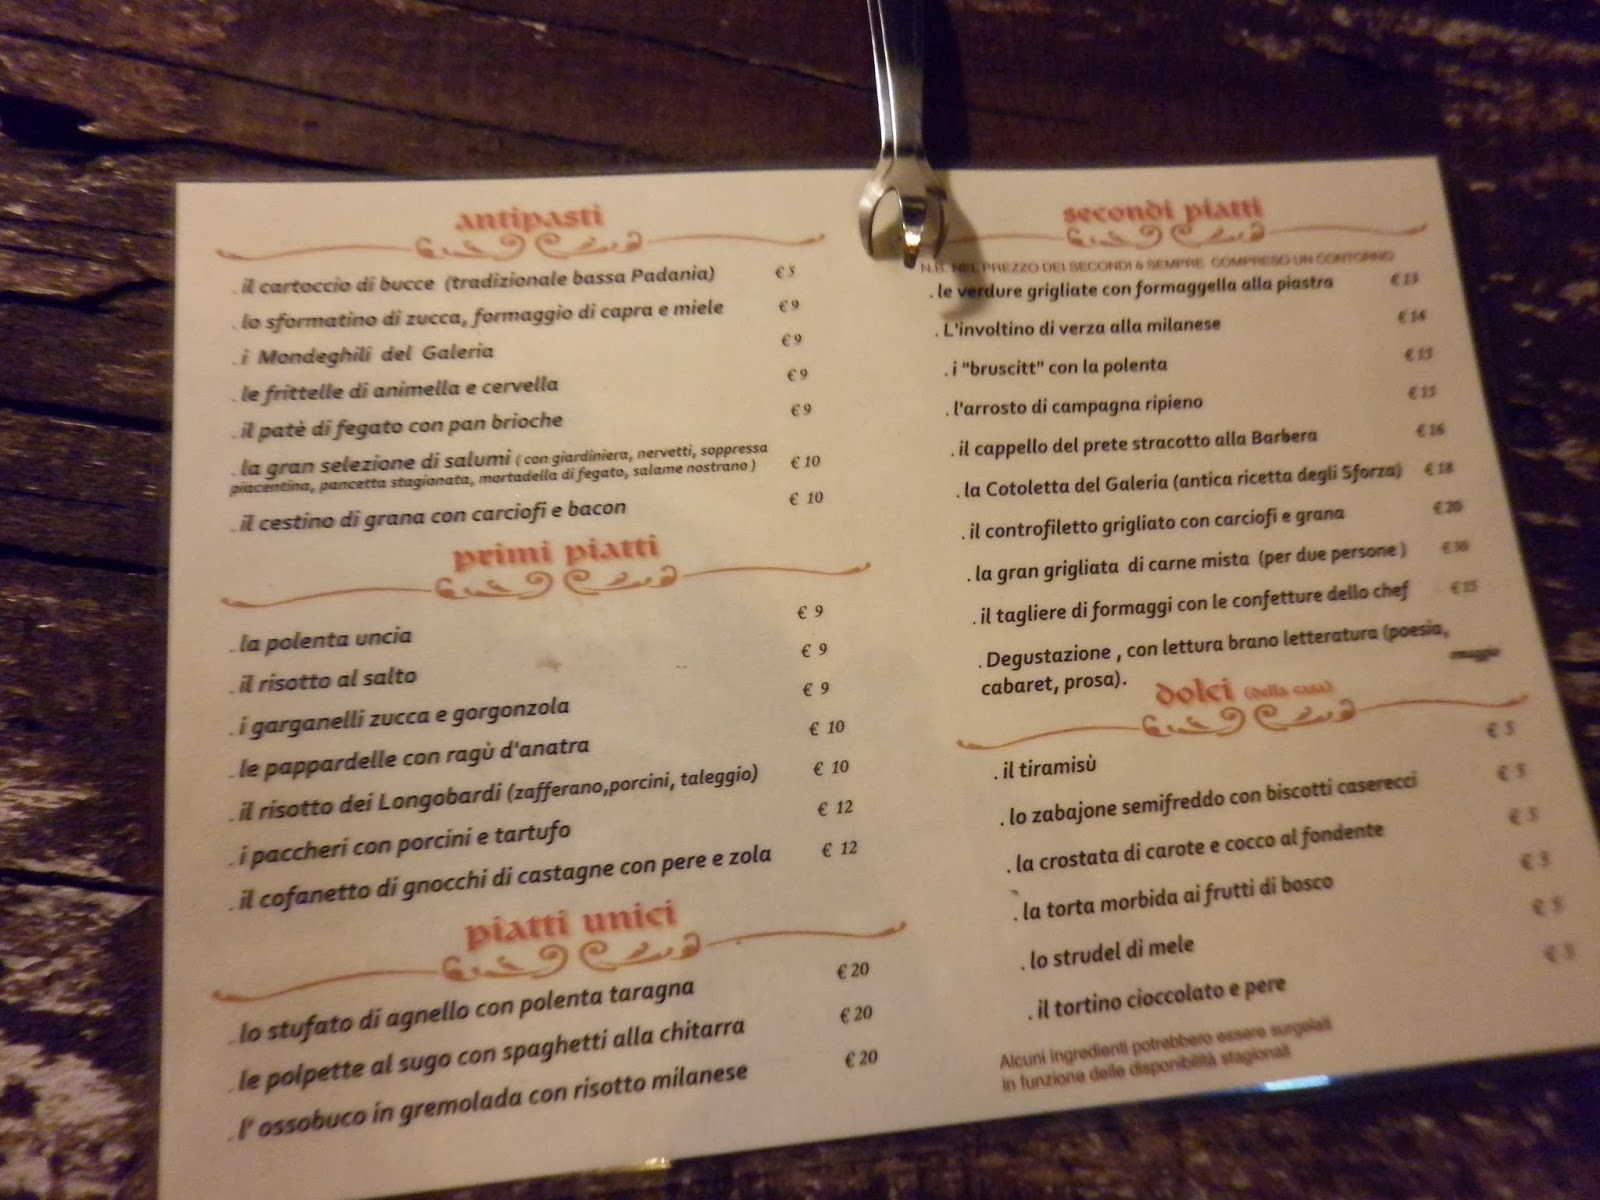 antipasti
. il cartoccio di bucce (tradizionale bassa Padania) € 5
. lo sformatino di zucca, formaggio di capra e miele € 9
. i Mondeghili del Galeria € 9
. le frittelle di animella e cervella € 9
. il patè di fegato con pan brioche € 9
. la gran selezione di salumi ( con giardiniera, nervetti, soppressa
piacentina, pancetta stagionata, mortadella di fegato, salame nostrano ) € 10
. il cestino di grana con carciofi e bacon € 10
primi piatti
. la polenta uncia € 9
. il risotto al salto € 9
. i garganelli zucca e gorgonzola € 9
. le pappardelle con ragù d'anatra € 10
. il risotto dei Longobardi (zafferano,porcini, taleggio) € 10
. i paccheri con porcini e tartufo € 12
. il cofanetto di gnocchi di castagne con pere e zola € 12
piatti unici
. lo stufato di agnello con polenta taragna € 20
. le polpette al sugo con spaghetti alla chitarra € 20
. l' ossobuco in gremolada con risotto milanese € 20
secondi piatti
N.B. NEL PREZZO DEI SECONDI è SEMPRE COMPRESO UN CONTORNO
. le verdure grigliate con formaggella alla piastra € 13
. L'involtino di verza alla milanese € 14
. i "bruscitt" con la polenta €
. l'arrosto di campagna ripieno € 15
. il cappello del prete stracotto alla Barbera € 16
. la Cotoletta del Galeria (antica ricetta degli Sforza) € 18
. il controfiletto grigliato con carciofi e grana € 20
. la gran grigliata di carne mista (per due persone ) €
. il tagliere di formaggi con le confetture dello chef € 15
. Degustazione , con lettura brano letteratura (poesia,
cabaret, prosa). omaggio
dolci (della casa)
. il tiramisù € 5
. lo zabajone semifreddo con biscotti caserecci € 5
. la crostata di carote e cocco al fondente € 5
. la torta morbida ai frutti di bosco € 5
. lo strudel di mele € 5
. il tortino cioccolato e pere € 5
Alcuni ingredienti potrebbero essere surgelati
in funzione delle disponibilità stagionali